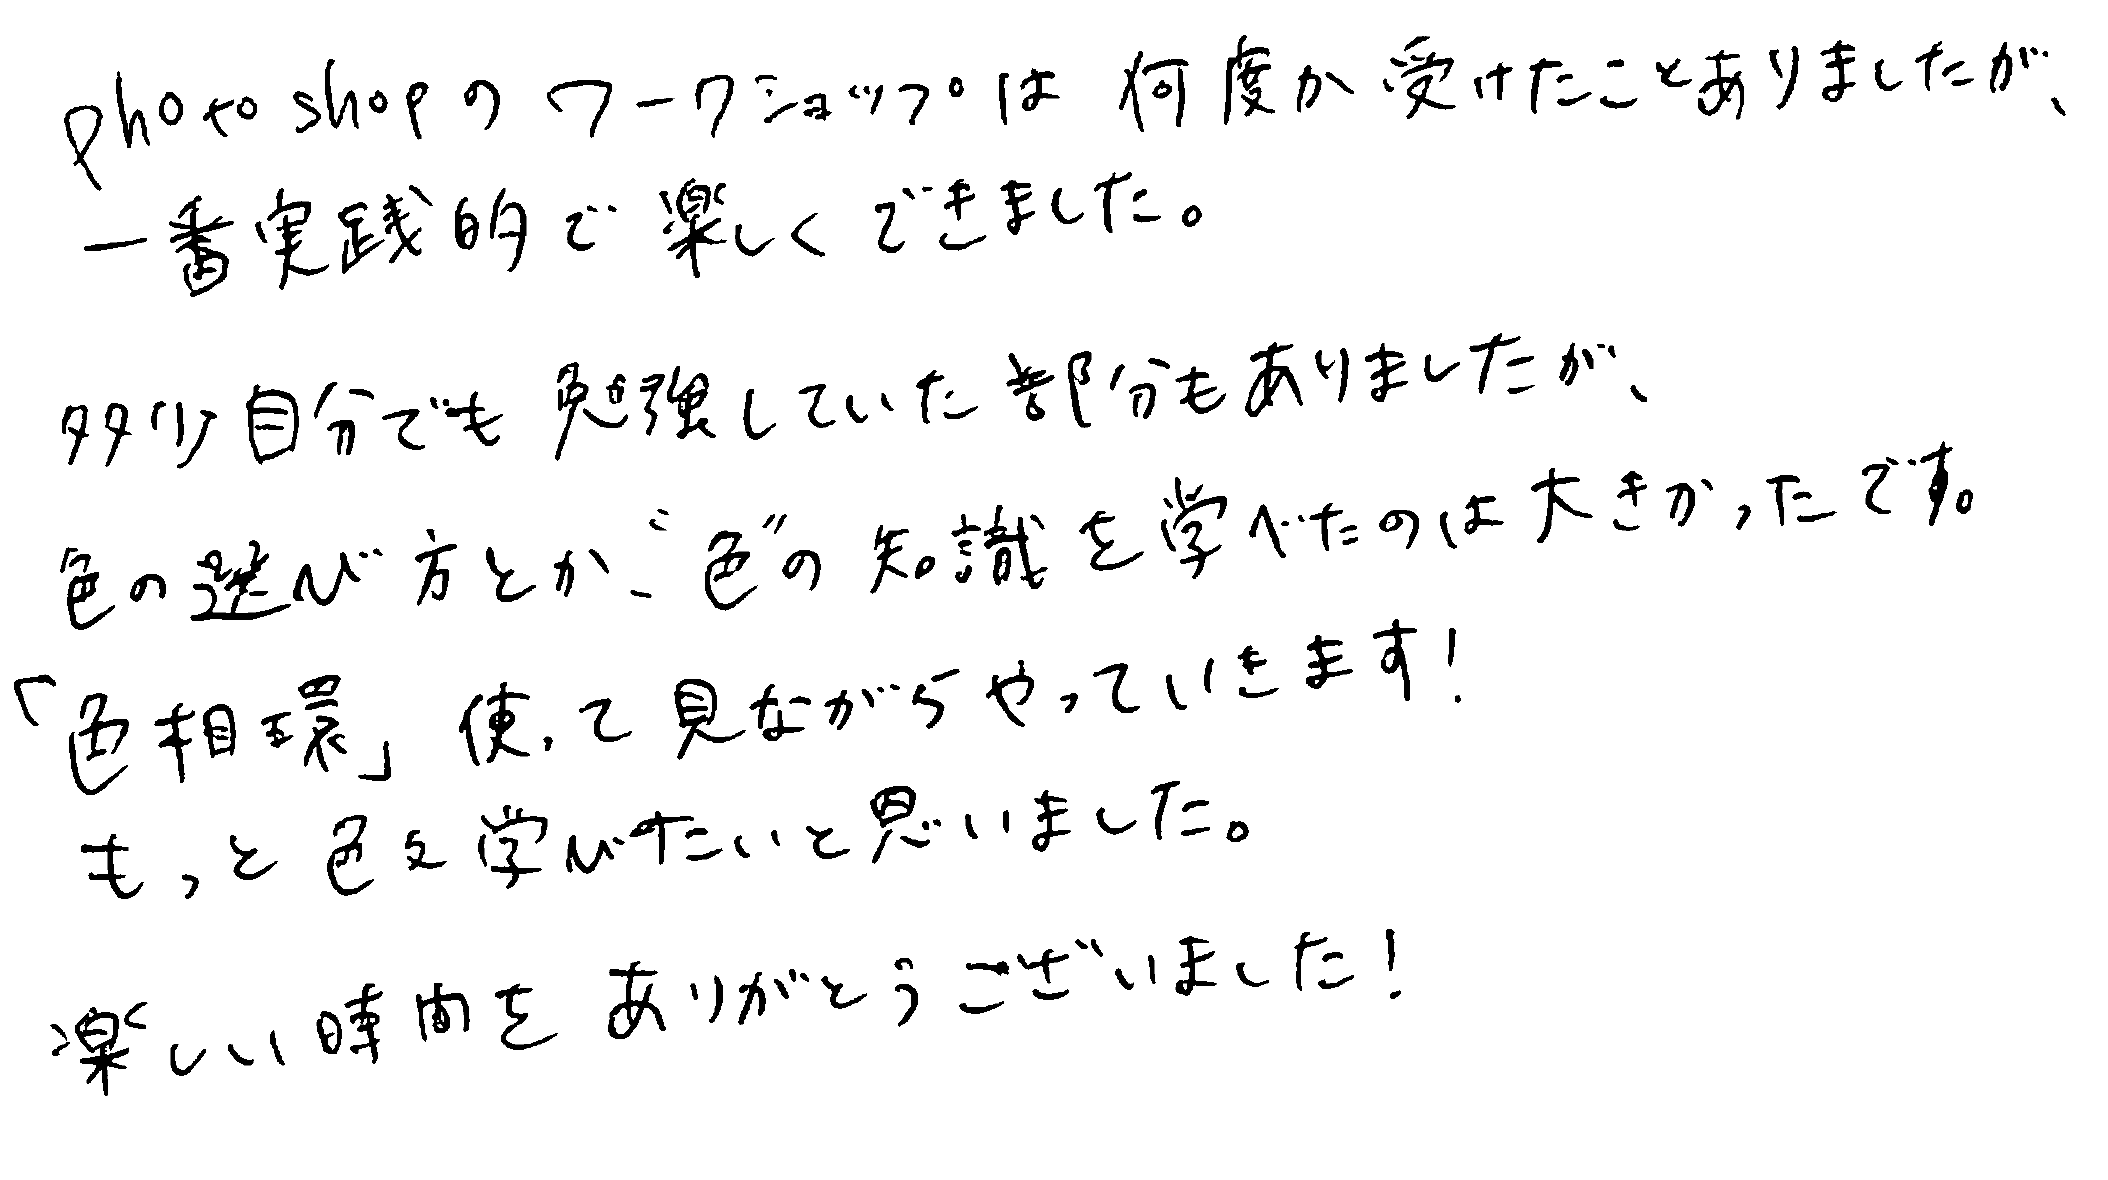 photoshopのワークショップは何度か受けたことありましたが、
一番実践的で楽しくできました。
多少自分でも勉強していた部分もありましたが、
色の選び方とか、"色"の知識を学べたのは大きかったです。
「色相環」使って見ながらやっていきます!
もっと色を学びたいと思いました。
楽しい時間をありがとうございました!